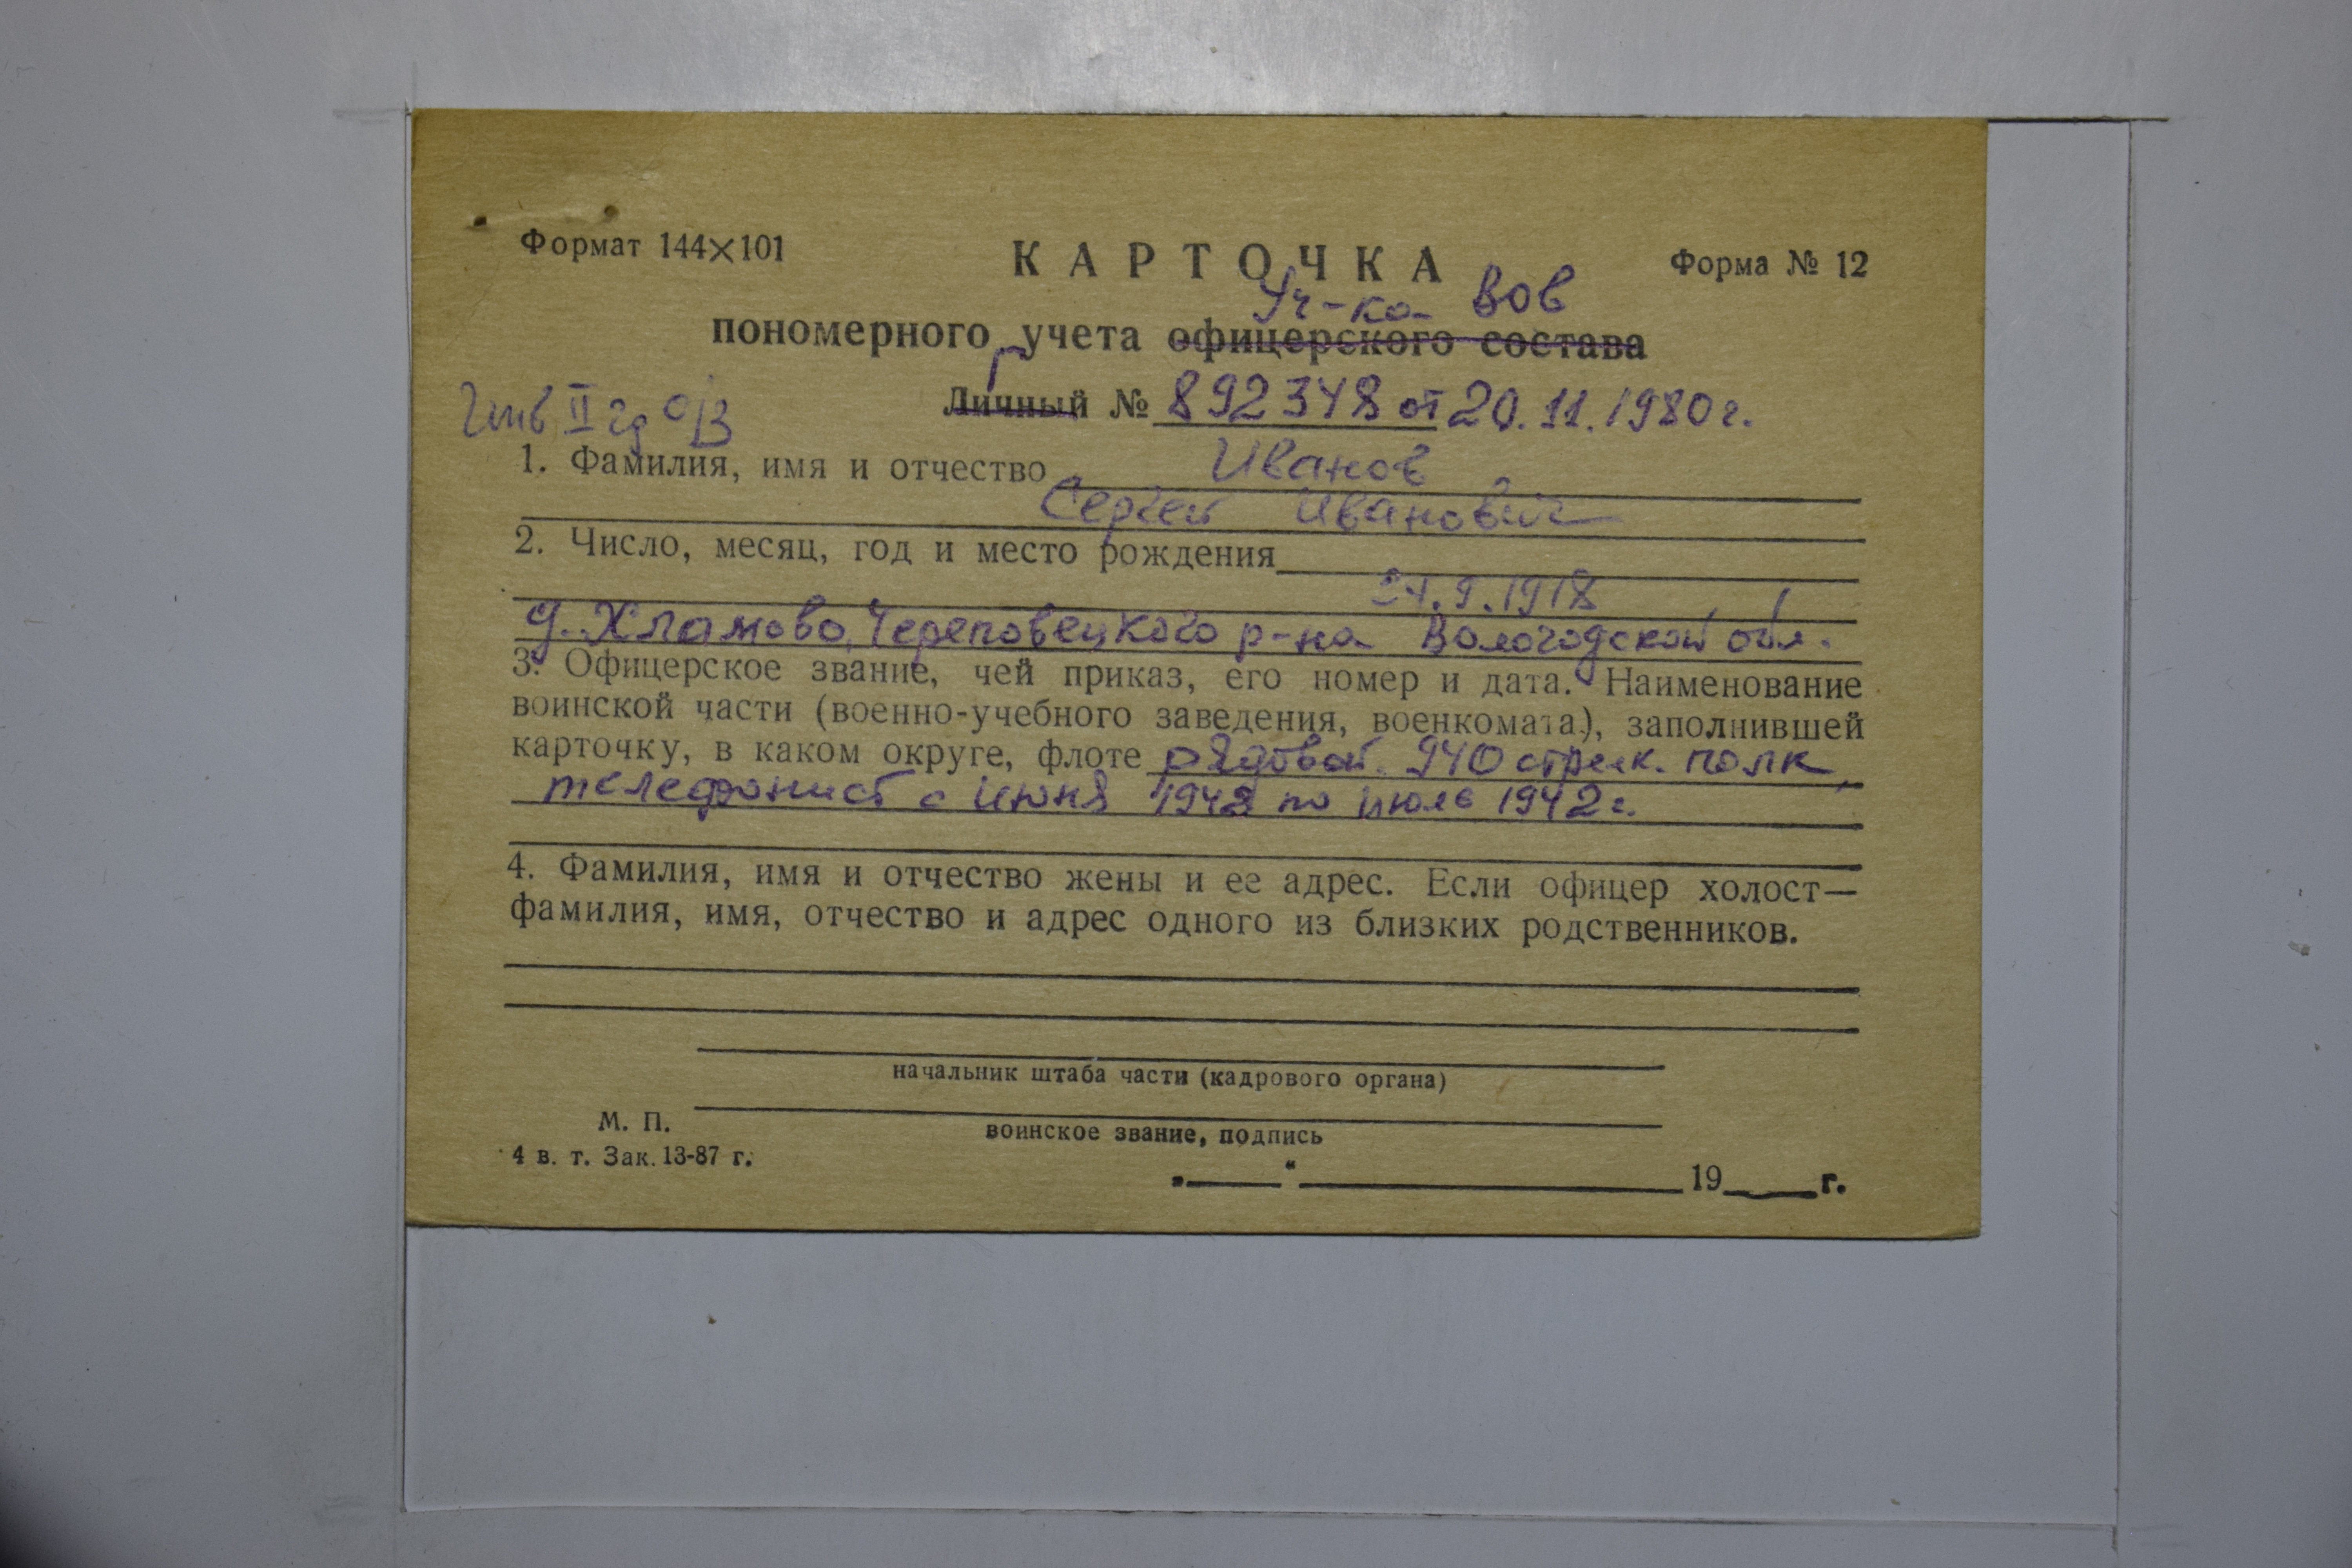 Формат 144×101
КАРТОЧКА
Форма № 12
Уч-ка ВОВ
пономерного учета офицерского состава
Г
Личный № 892348 от 20.11.1980 г.
II
1. Фамилия, имя и отчество Иванов
Сергей Иванович
2. Число, месяц, год и место рождения
24.9.1918
д. Хламово, Череповецкого р-на Вологодской обл.
3. Офицерское звание, чей приказ, его номер и дата. Наименование
воинской части (военно-учебного заведения, военкомата), заполнившей
карточку, в каком округе, флоте рядовой. 940 стрелк. полк,
телефонист с июня 1942 по июль 1942 г.
4. Фамилия, имя и отчество жены и ее адрес. Если офицер холост—
фамилия, имя, отчество и адрес одного из близких родственников.
начальник штаба части (кадрового органа)
М. П.
воинское звание, подпись
4 в. т. Зак. 13-87 г.
„ “ 19 г.